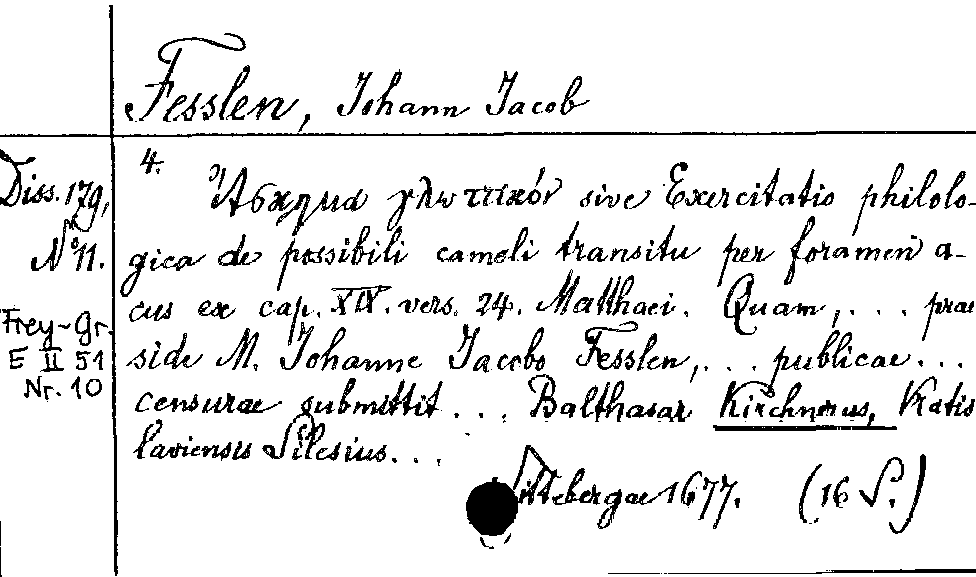 Fesslen, Johann Jacob
4.
Diss. 179,
No 11.
Frey-Gr.
E II 51
Nr. 10
Ἄσκημα γλωττικόν sive Exercitatio philolo-
gica de possibili cameli transitu per foramen a-
cus ex cap. XIX. vers. 24. Matthaei. Quam, ... prae
side M. Johanne Jacobo Fesslen, ... publicae ...
censurae submittit ... Balthasar Kirchnerus, Vratis
laviensis Silesius ...
Wittebergae 1677. (16 S.)